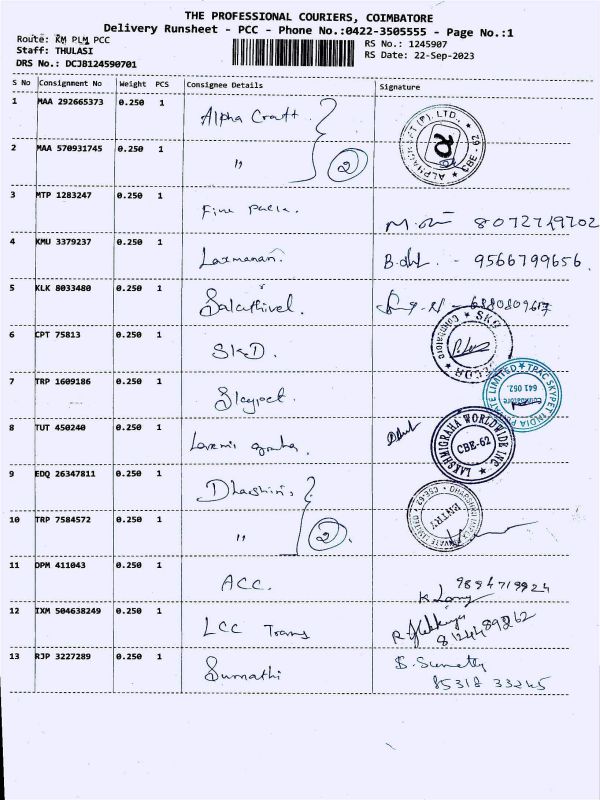 THE PROFESSIONAL COURIERS, COIMBATORE
Delivery Runsheet - PCC - Phone No.:0422-3505555 - Page No.:1
Route: RM PLM PCC
Staff: THULASI
DRS No.: DCJB124590701
RS No.: 1245907
RS Date: 22-Sep-2023
S No Consignment No Weight PCS Consignee Details Signature
1 MAA 292665373 0.250 1 Alpha Craft
2 MAA 570931745 0.250 1 " 2
3 MTP 1283247 0.250 1 8072719702
4 KMU 3379237 0.250 1 Laxmanan. - 9566799656.
5 KLK 8033480 0.250 1 Sakthivel.
6 CPT 75813 0.250 1 SKD.
SKG DECOR COIMBATORE
7 TRP 1609186 0.250 1 Skypet.
TRAC SKYPET INDIA PRIVATE LIMITED
Coimbatore
641 062.
8 TUT 450240 0.250 1
LAKSHMIGRAHA WORLDWIDE INC
CBE-62
9 EDQ 26347811 0.250 1 Dharshini
ENTRY
10 TRP 7584572 0.250 1 " 2
11 DPM 411043 0.250 1 ACC. 9894719924
12 IXM 504638249 0.250 1 LCC Trans
13 RJP 3227289 0.250 1 Sumathi S. Sumathy
85318 33245